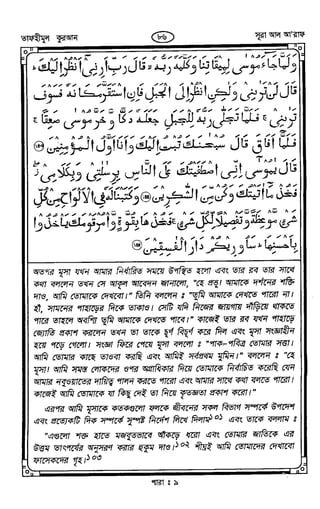 তাফহীমুল কুরআন
৮৬
সূরা আল আ'রাফ
وَلَمَّا جَآءَ مُوْسٰى لِمِيْقَاتِنَا وَكَلَّمَهٗ رَبُّهٗ ۙ قَالَ رَبِّ اَرِنِيْٓ اَنْظُرْ اِلَيْكَ ؕ
قَالَ لَنْ تَرٰىنِيْ وَلٰكِنِ انْظُرْ اِلَى الْجَبَلِ فَاِنِ اسْتَقَرَّ مَكَانَهٗ فَسَوْفَ
تَرٰىنِيْ ۚ فَلَمَّا تَجَلّٰى رَبُّهٗ لِلْجَبَلِ جَعَلَهٗ دَكًّا وَّخَرَّ مُوْسٰى صَعِقًا ۚ
فَلَمَّآ اَفَاقَ قَالَ سُبْحٰنَكَ تُبْتُ اِلَيْكَ وَاَنَا اَوَّلُ الْمُؤْمِنِيْنَ ﴿١٤٣﴾
قَالَ يٰمُوْسٰٓى اِنِّى اصْطَفَيْتُكَ عَلَى النَّاسِ بِرِسٰلٰتِيْ وَبِكَلَامِيْ ۖ
فَخُذْ مَآ اٰتَيْتُكَ وَكُنْ مِّنَ الشّٰكِرِيْنَ ﴿١٤٤﴾ وَكَتَبْنَا لَهٗ فِى الْاَلْوَاحِ مِنْ كُلِّ
شَيْءٍ مَّوْعِظَةً وَّتَفْصِيْلًا لِّكُلِّ شَيْءٍ ۚ فَخُذْهَا بِقُوَّةٍ وَّاْمُرْ قَوْمَكَ يَاْخُذُوْا
بِاَحْسَنِهَا ؕ سَاُورِيْكُمْ دَارَ الْفٰسِقِيْنَ ﴿١٤٥﴾
অতপর মূসা যখন আমার নির্ধারিত সময়ে উপস্থিত হলো এবং তার রব তার সাথে
কথা বললেন তখন সে আকূল আবেদন জানালো, "হে প্রভু! আমাকে দর্শনের শক্তি
দাও, আমি তোমাকে দেখবো।" তিনি বললেন : "তুমি আমাকে দেখতে পারো না।
হাঁ, সামনের পাহাড়ের দিকে তাকাও। সেটি যদি নিজের জায়গায় দাঁড়িয়ে থাকতে
পারে তাহলে অবশ্যি তুমি আমাকে দেখতে পাবে।" কাজেই তার রব যখন পাহাড়ে
জ্যোতি প্রকাশ করলেন তখন তা তাকে চূর্ণ বিচূর্ণ করে দিল এবং মূসা সংজ্ঞাহীন
হয়ে পড়ে গেলো। সংজ্ঞা ফিরে পেয়ে মূসা বললো : "পাক-পবিত্র তোমার সত্তা।
আমি তোমার কাছে তাওবা করছি এবং আমিই সর্বপ্রথম মুমিন।" বললেন : "হে
মূসা! আমি সমস্ত লোকদের ওপর অগ্রাধিকার দিয়ে তোমাকে নির্বাচিত করেছি যেন
আমার নবুওয়াতের দায়িত্ব পালন করতে পারো এবং আমার সাথে কথা বলতে পারো।
কাজেই আমি তোমাকে যা কিছু দেই তা নিয়ে কৃতজ্ঞতা প্রকাশ করো।"
এরপর আমি মূসাকে কতকগুলো ফলকে জীবনের সকল বিভাগ সম্পর্কে উপদেশ
এবং প্রত্যেকটি দিক সম্পর্কে সুস্পষ্ট নির্দেশ লিখে দিলাম১০১ এবং তাকে বললাম :
"এগুলো শক্ত হাতে মজবুতভাবে আঁকড়ে ধরো এবং তোমার জাতিকে এর
উত্তম তাৎপর্যের অনুসরণ করার হুকুম দাও।১০২ শীঘ্রই আমি তোমাদের দেখাবো
ফাসেকদের গৃহ।১০৩
পারা : ৯